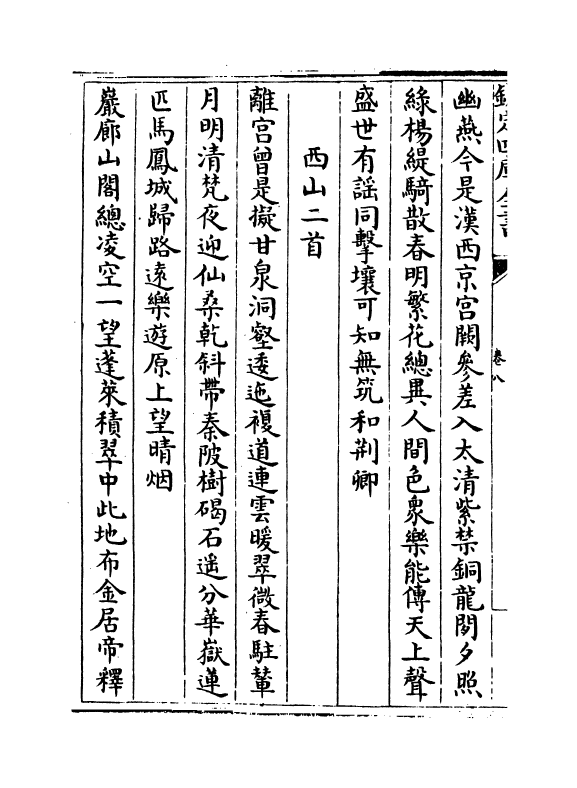 欽定四庫全書
卷八
幽燕今是漢西京宫闕參差入太清紫禁銅龍閟夕照
綠楊緹騎散春明繁花總異人間色衆樂能傳天上聲
盛世有謡同擊壤可知無筑和荆卿
西山二首
離宫曾是擬甘泉洞壑逶迤複道連雲暖翠微春駐輦
月明清梵夜迎仙桑乾斜帶秦陂樹碣石遥分華嶽蓮
匹馬鳳城歸路遠樂遊原上望晴烟
巖廊山閣總凌空一望蓬萊積翠中此地布金居帝釋